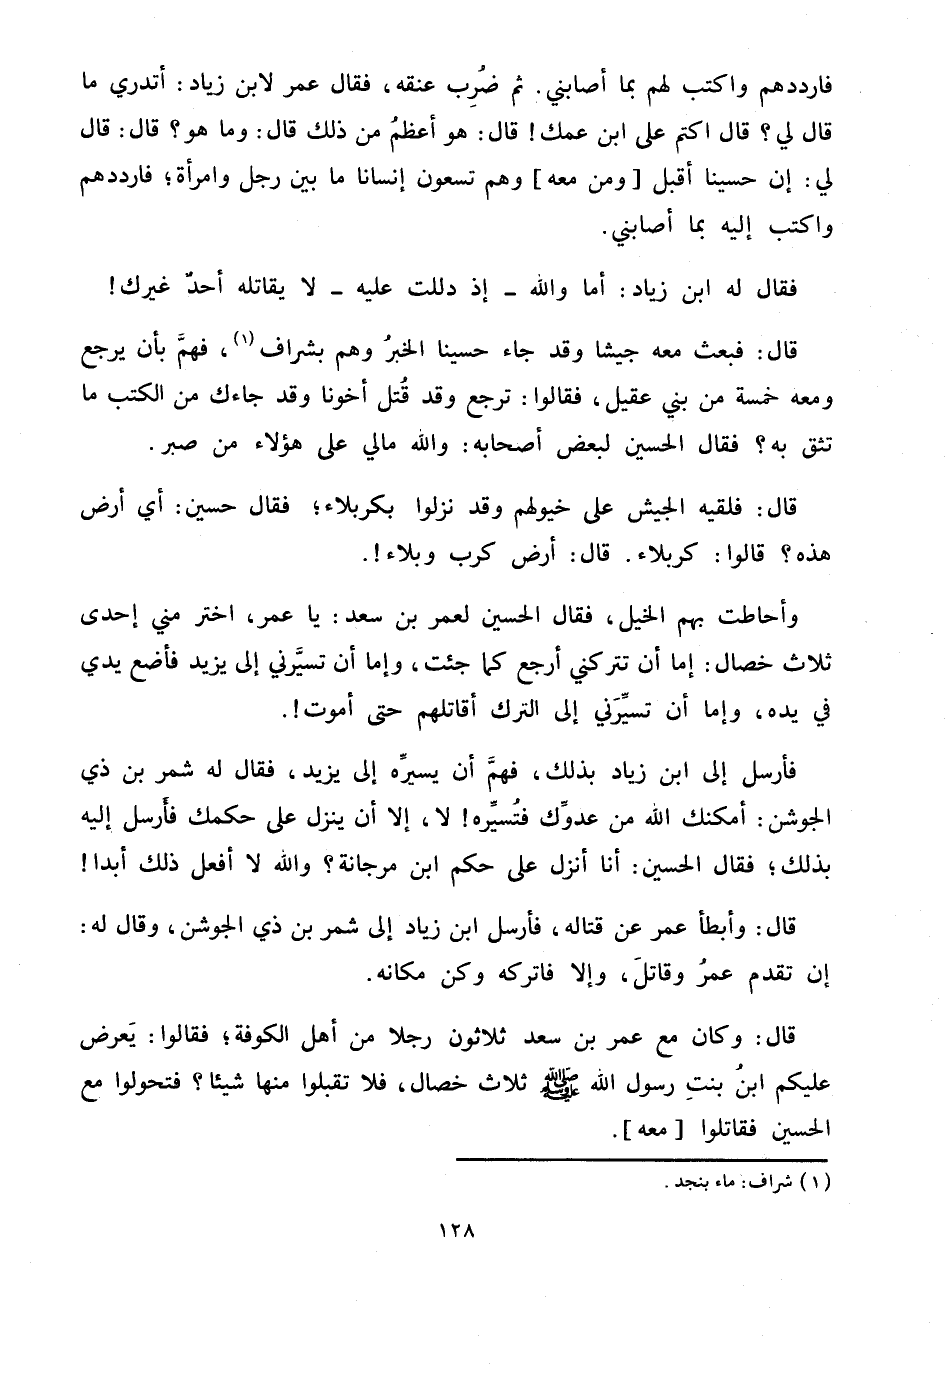 فارددهم واكتب لهم بما أصابني. ثم ضُرِب عنقه، فقال عمر لابن زياد: أتدري ما
قال لي؟ قال اكتم على ابن عمك! قال: هو أعظمُ من ذلك قال: وما هو؟ قال: قال
لي: إن حسينا أقبل [ومن معه] وهم تسعون إنسانا ما بين رجل وامرأة؛ فارددهم
واكتب إليه بما أصابني.
فقال له ابن زياد: أما والله - إذ دللت عليه - لا يقاتله أحدٌ غيرك!
قال: فبعث معه جيشا وقد جاء حسينا الخبرُ وهم بشراف(١)، فهمَّ بأن يرجع
ومعه خمسة من بني عقيل، فقالوا: ترجع وقد قُتل أخونا وقد جاءك من الكتب ما
تثق به؟ فقال الحسين لبعض أصحابه: والله مالي على هؤلاء من صبر.
قال: فلقيه الجيش على خيولهم وقد نزلوا بكربلاء؛ فقال حسين: أي أرض
هذه؟ قالوا: كربلاء. قال: أرض كرب وبلاء!.
وأحاطت بهم الخيل، فقال الحسين لعمر بن سعد: يا عمر، اختر مني إحدى
ثلاث خصال: إما أن تتركني أرجع كما جئت، وإما أن تسيَّرني إلى يزيد فأضع يدي
في يده، وإما أن تسيِّرَني إلى الترك أقاتلهم حتى أموت!.
فأرسل إلى ابن زياد بذلك، فهمَّ أن يسيرِّه إلى يزيد، فقال له شمر بن ذي
الجوشن: أمكنك الله من عدوِّك فتُسيِّره! لا، إلا أن ينزل على حكمك فأَرسل إليه
بذلك؛ فقال الحسين: أنا أنزل على حكم ابن مرجانة؟ والله لا أفعل ذلك أبدا!
قال: وأبطأ عمر عن قتاله، فأرسل ابن زياد إلى شمر بن ذي الجوشن، وقال له:
إن تقدم عمرُ وقاتلَ، وإلا فاتركه وكن مكانه.
قال: وكان مع عمر بن سعد ثلاثون رجلا من أهل الكوفة؛ فقالوا: يَعرض
عليكم ابنُ بنتِ رسول الله ﷺ ثلاث خصال، فلا تقبلوا منها شيئا؟ فتحولوا مع
الحسين فقاتلوا [معه].
(١) شراف: ماء بنجد.
١٢٨